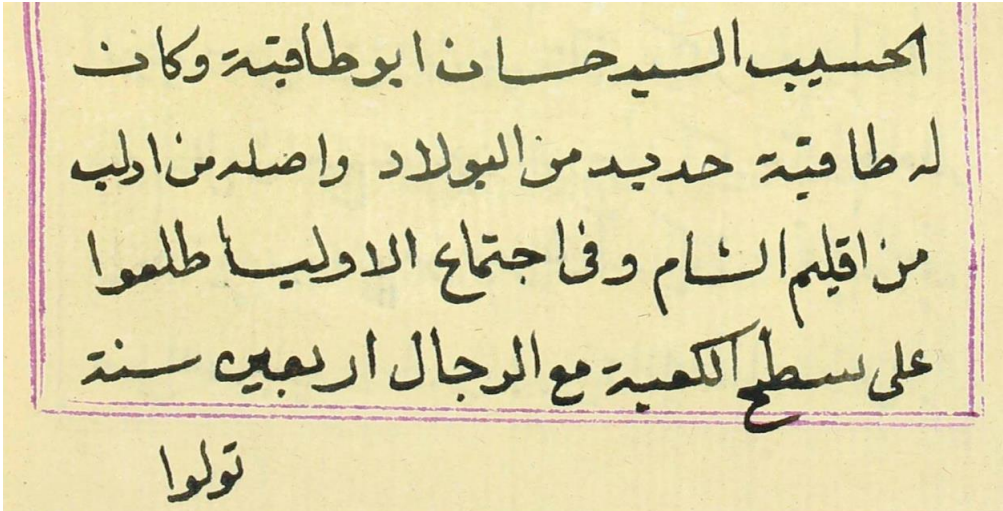 الحسيب السيد حسان ابو طاقية وكان
له طاقية حديد من البولاد واصله من ادلب
من اقليم الشام وفى اجتماع الاوليا طلعوا
على سطح الكعبة مع الرجال اربعين سنة
تولوا